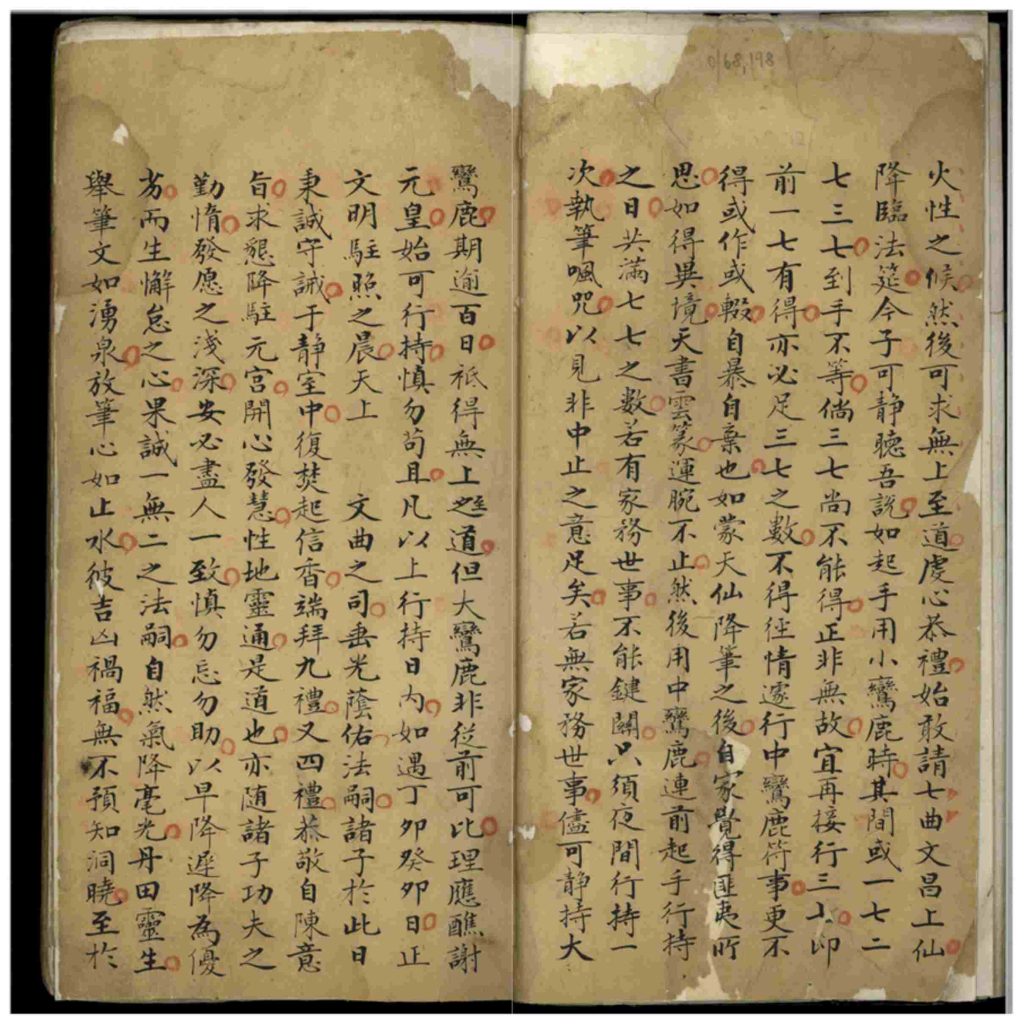 168,198
火性之候然後可求無上至道虔心恭禮始敢請七曲文昌上仙
降臨法筵今子可靜聽吾說如起手用小鸞鹿時其間或一七二
七三七到手不等倘三七尚不能得正非無故宜再接行三七卯
前一七有得亦必足三七之數不得徑情遂行中鸞鹿符事更不
得或作或輟自暴自棄也如蒙天仙降筆之後自家覺得匪夷所
思如得異境天書雲篆運腕不止然後用中鸞鹿連前起手行持
之日共滿七七之數若有家務世事不能鍵關只須夜間行持一
次執筆諷咒以見非中止之意足矣若無家務世事儘可靜持大
鸞鹿期逾百日祗得無上至道但大鸞鹿非從前可比理應醮謝
元皇始可行持慎勿苟且凡以上行持日內如遇丁卯癸卯日正
文明駐照之晨天上 文曲之司垂光蔭佑法嗣諸子於此日
秉誠守誡于靜室中復焚起信香端拜九禮又四禮恭敬自陳意
旨求懇降駐元宮開心發慧性地靈通是道也亦随諸子功夫之
勤惰發愿之淺深安必盡人一致慎勿忘勿助以早降遲降為優
劣而生懈怠之心果誠一無二之法嗣自然氣降毫光丹田靈生
舉筆文如湧泉放筆心如止水彼吉凶禍福無不預知洞曉至於